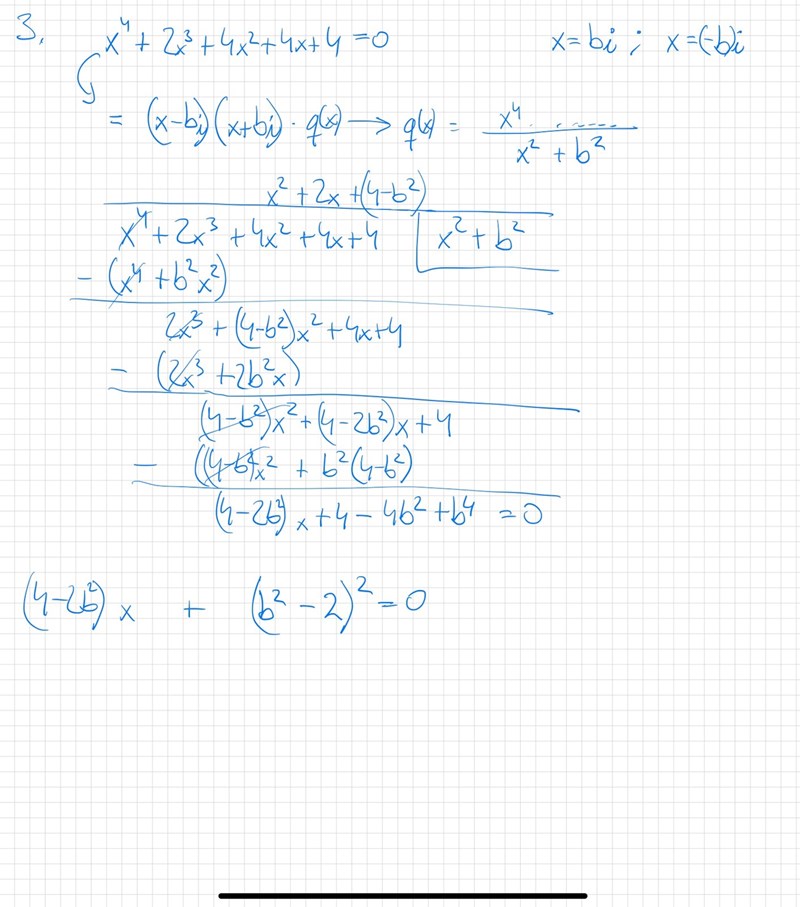 3. x⁴ + 2x³ + 4x² + 4x + 4 = 0 x = bi ; x = (-b)i
= (x-bi)(x+bi) · q(x) → q(x) = x⁴ ........ / x² + b²
x² + 2x + (4-b²)
x⁴ + 2x³ + 4x² + 4x + 4 x² + b²
- (x⁴ + b²x²)
2x³ + (4-b²)x² + 4x + 4
- (2x³ + 2b²x)
(4-b²)x² + (4-2b²)x + 4
- ((4-b²)x² + b²(4-b²))
(4-2b²)x + 4 - 4b² + b⁴ = 0
(4-2b²)x + (b² - 2)² = 0